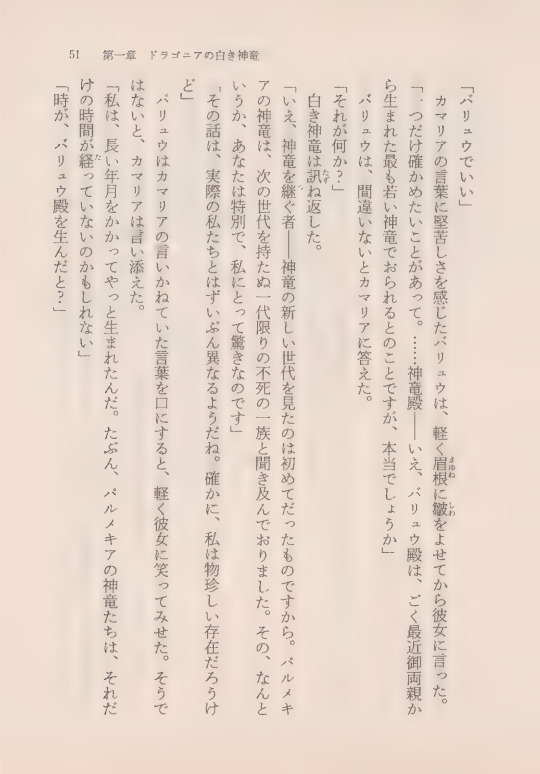 51　第一章　ドラゴニアの白き神竜
「バリュウでいい」
カマリアの言葉に堅苦しさを感じたバリュウは、軽く眉根に皺をよせてから彼女に言った。
「一つだけ確かめたいことがあって。……神竜殿――いえ、バリュウ殿は、ごく最近御両親か
ら生まれた最も若い神竜でおられるとのことですが、本当でしょうか」
バリュウは、間違いないとカマリアに答えた。
「それが何か？」
白き神竜は訊ね返した。
「いえ、神竜を継ぐ者――神竜の新しい世代を見たのは初めてだったものですから。パルメキ
アの神竜は、次の世代を持たぬ一代限りの不死の一族と聞き及んでおりました。その、なんと
いうか、あなたは特別で、私にとって驚きなのです」
「その話は、実際の私たちとはずいぶん異なるようだね。確かに、私は物珍しい存在だろうけ
ど」
バリュウはカマリアの言いかねていた言葉を口にすると、軽く彼女に笑ってみせた。そうで
はないと、カマリアは言い添えた。
「私は、長い年月をかかってやっと生まれたんだ。たぶん、パルメキアの神竜たちは、それだ
けの時間が経っていないのかもしれない」
「時が、バリュウ殿を生んだと？」